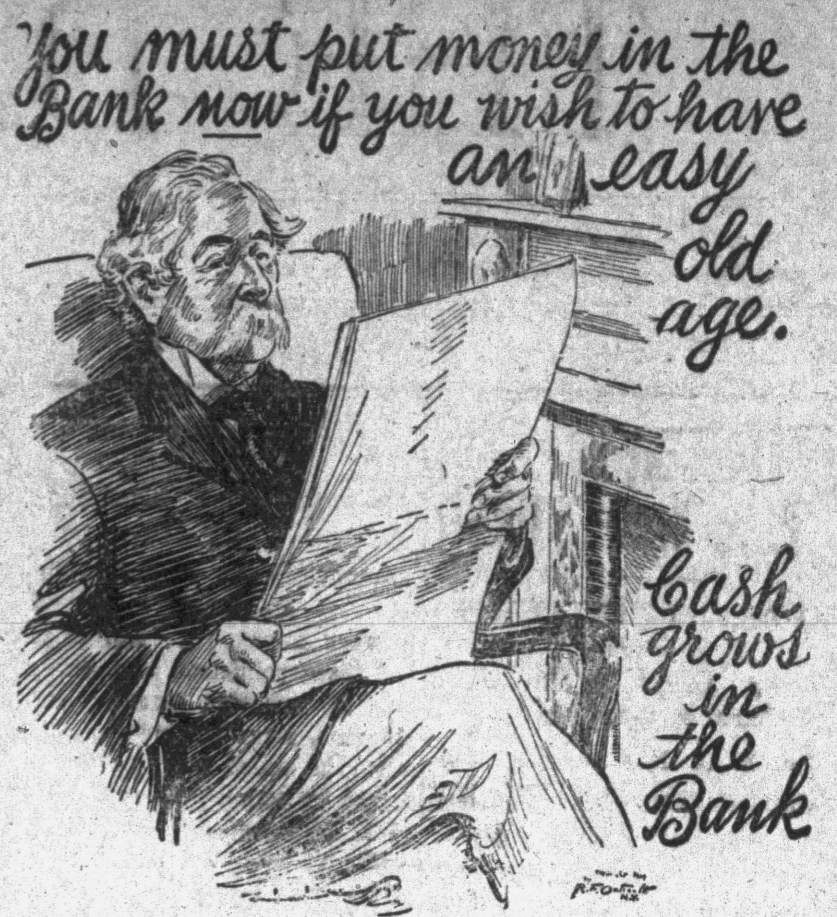 You must put money in the
Bank now if you wish to have
an easy
old
age.
Cash
grows
in
the
Bank
R.F. Outcault